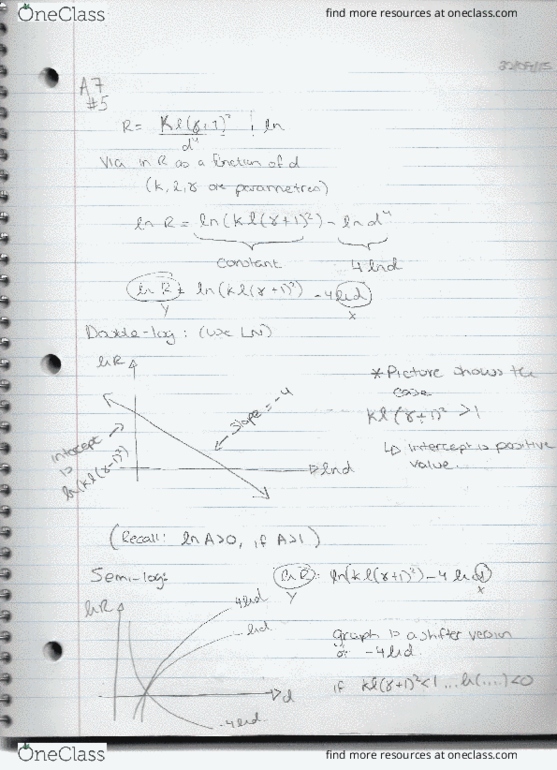 OneClass
find more resources at oneclass.com
A7
#5
R = Kl(γ+1)² , ln
d⁴
View ln R as a function of d
(k, l, γ are parametres)
ln R = ln(kl(γ+1)²) - ln d⁴
constant
4 ln d
ln R = ln(kl(γ+1)²) - 4 ln d
Y
x
Double-log: (use LN)
ln R
slope = -4
intercept
is
ln(kl(γ+1)²)
ln d
*Picture shows the
case
kl(γ+1)² > 1
↳ intercept is positive
value.
(Recall: ln A>0, if A>1)
Semi-log:
ln R = ln(kl(γ+1)²) - 4 ln d
Y
x
ln R
4 ln d
ln d
d
-4 ln d
graph is a shifter version
of -4 ln d.
if kl(γ+1)²<1 ... ln(....)<0
OneClass
find more resources at oneclass.com